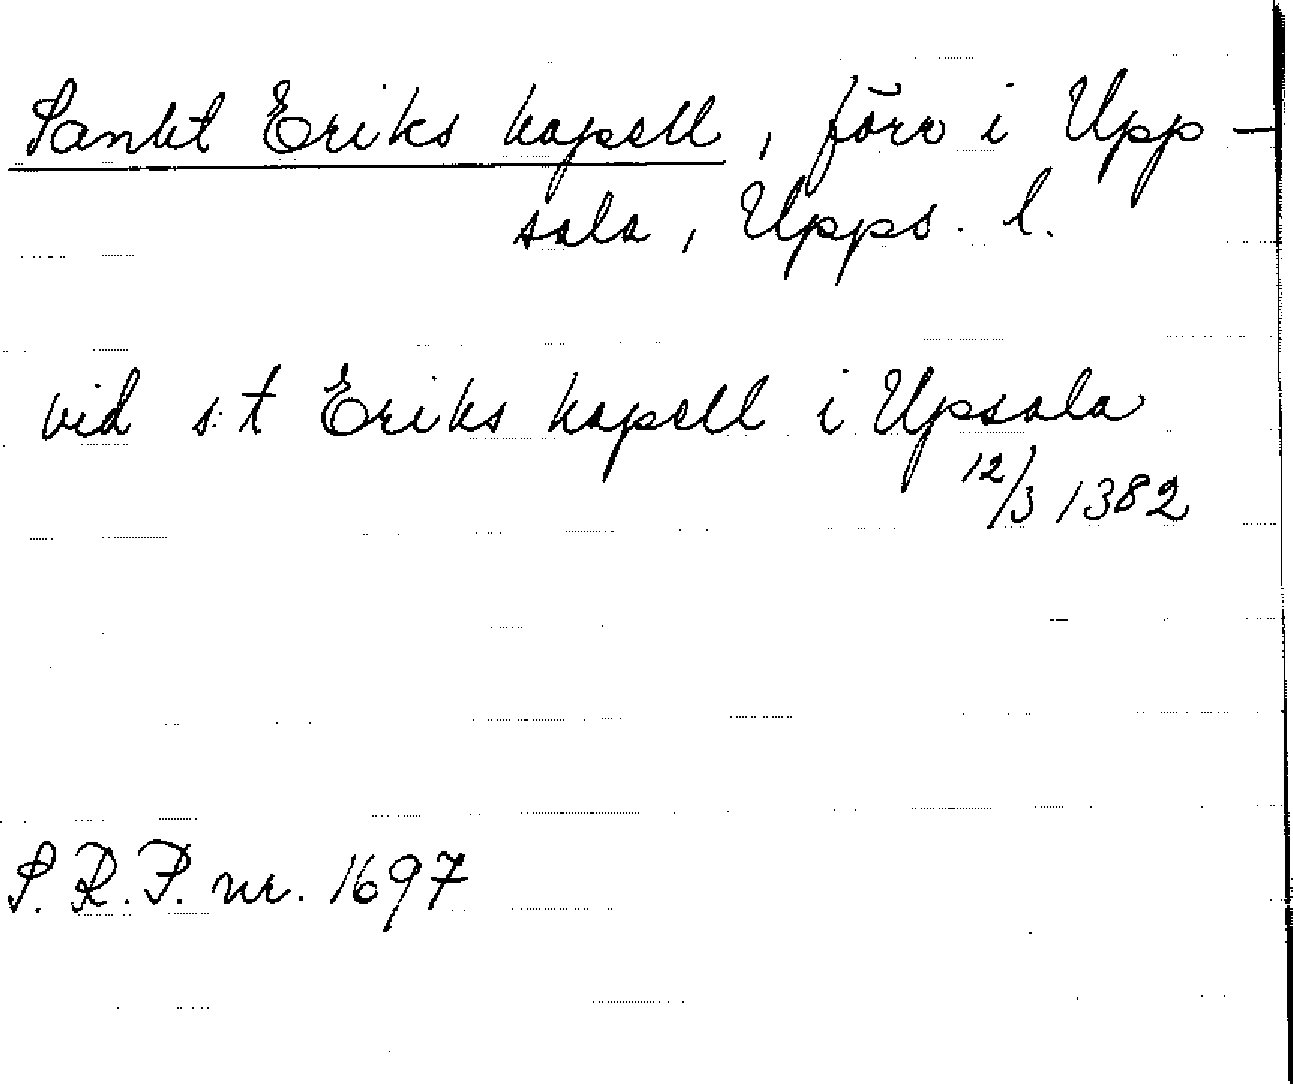 Sankt Eriks kapell, förr i Upp-
sala, Upps. l.
vid s:t Eriks kapell i Upsala
12/3 1382
S.R.P. nr. 1697